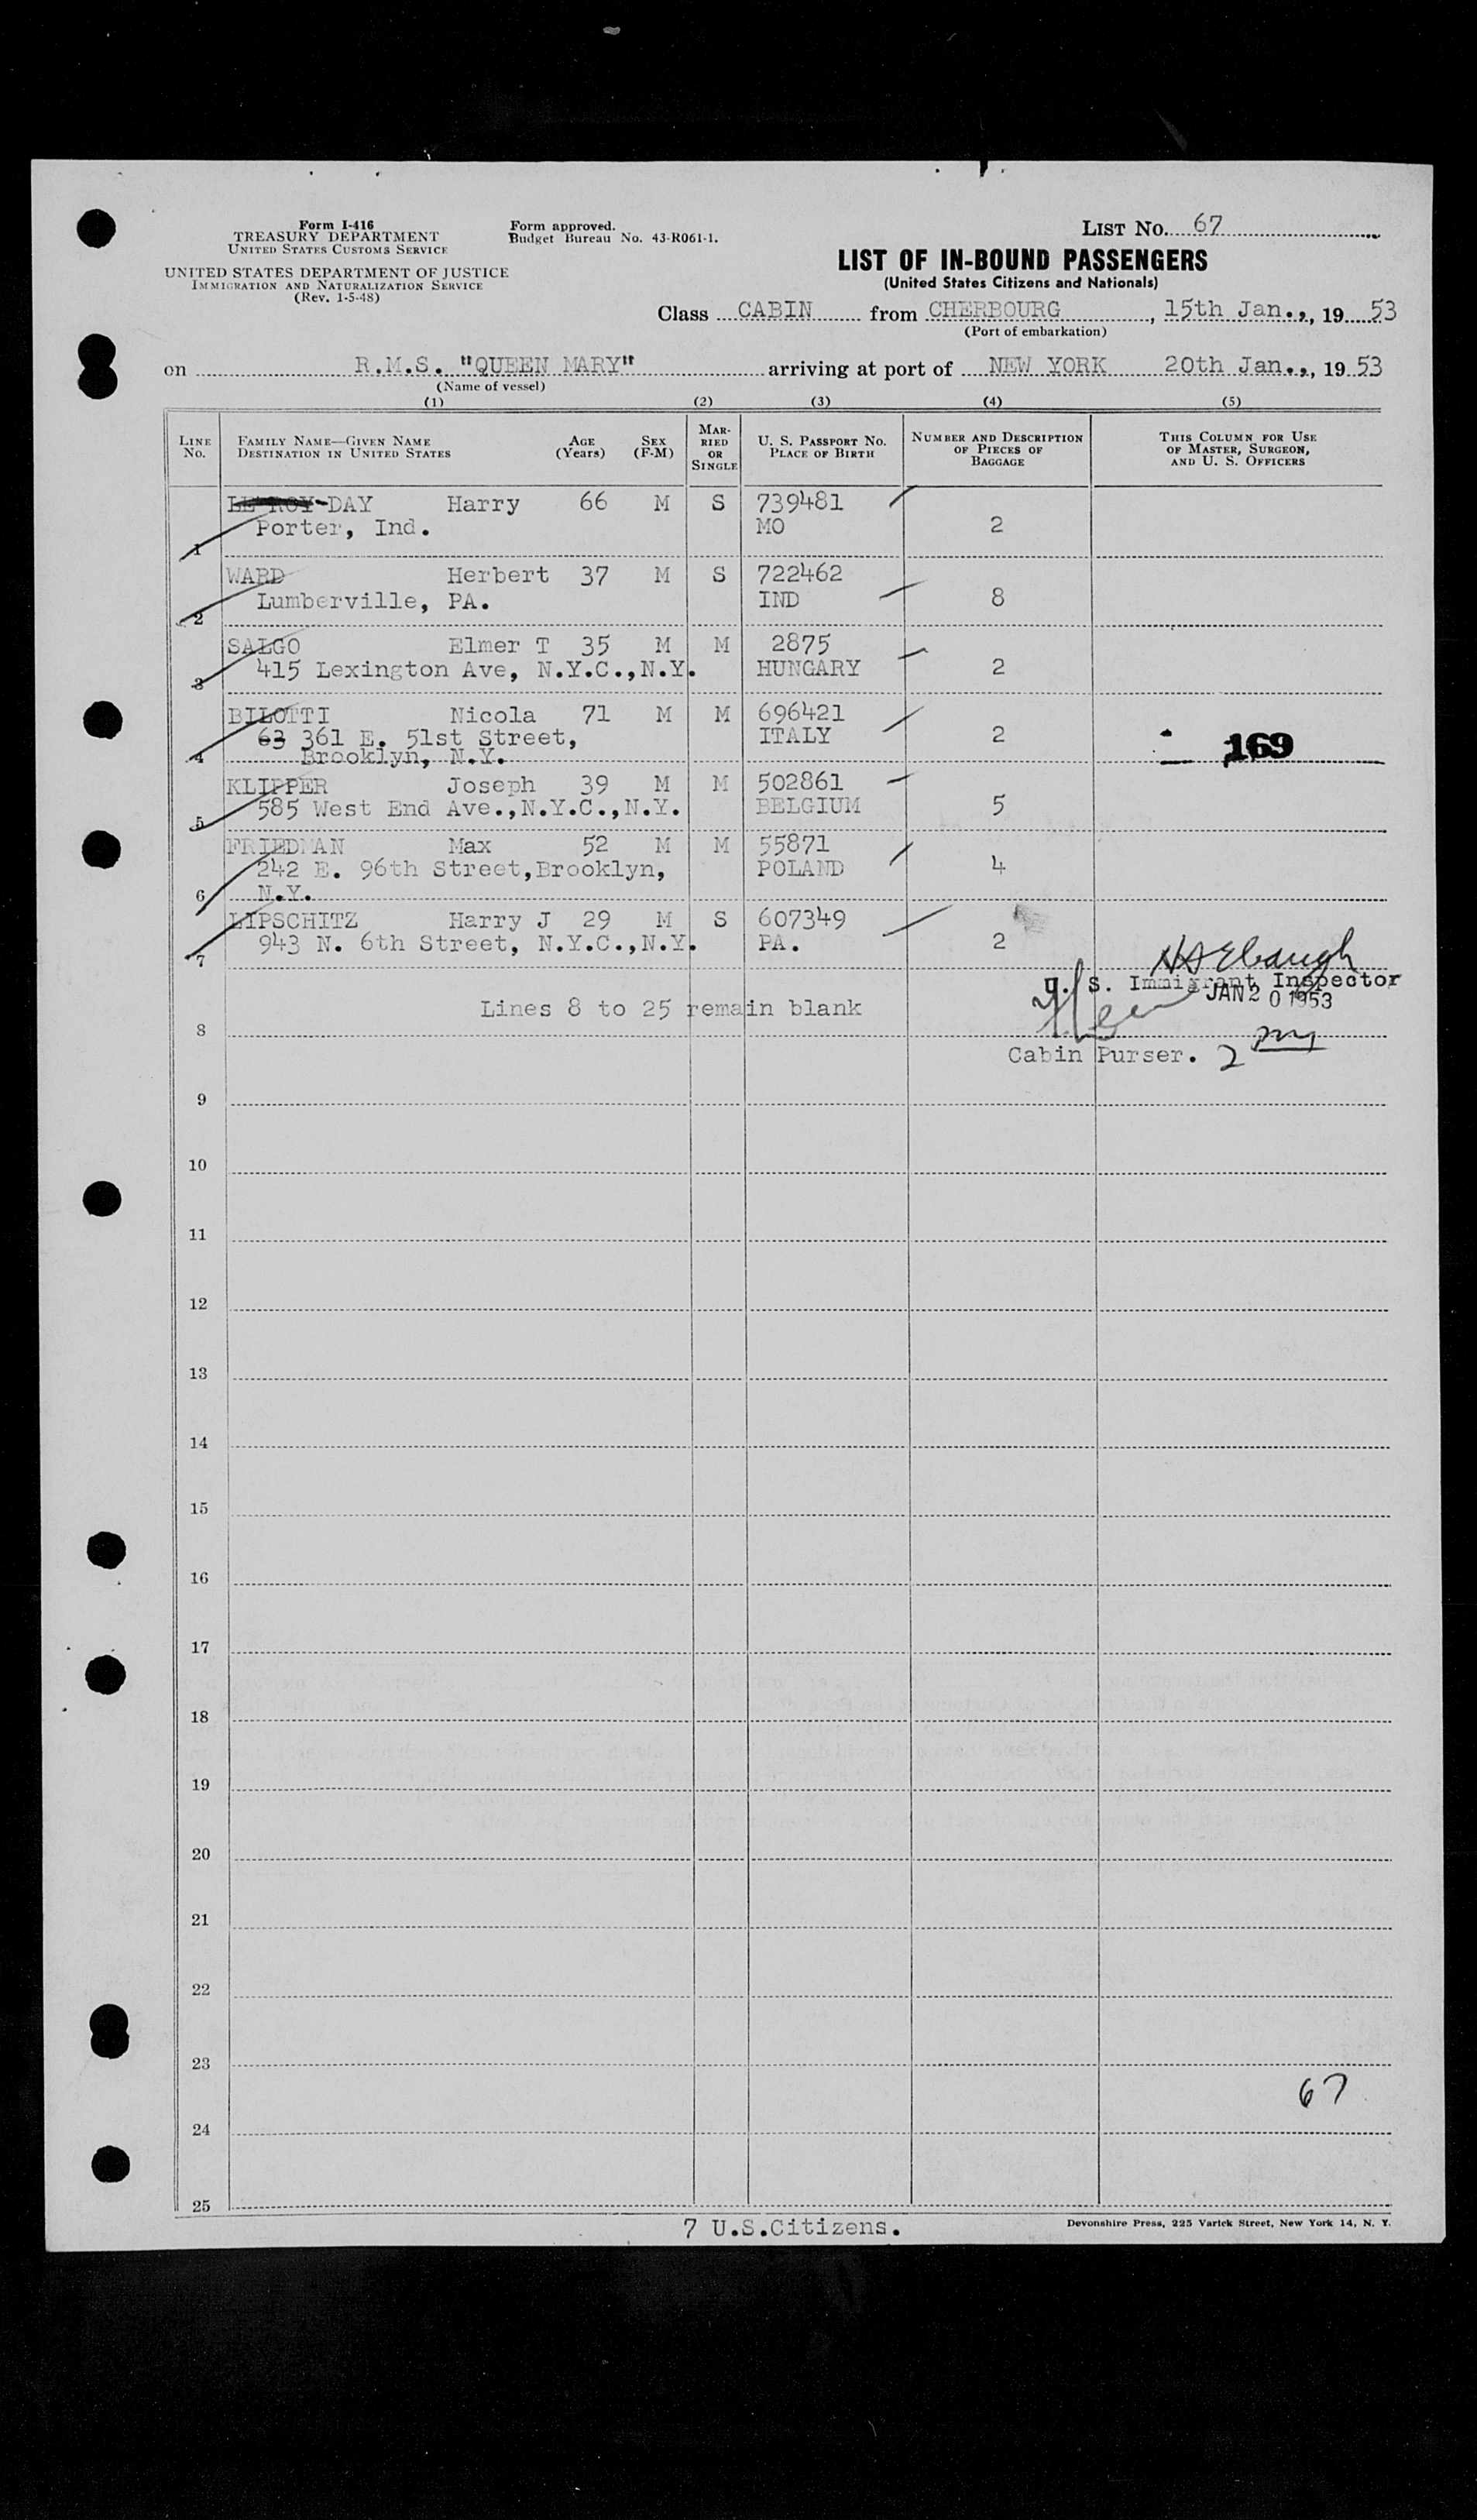 Form I-416
TREASURY DEPARTMENT
UNITED STATES CUSTOMS SERVICE
UNITED STATES DEPARTMENT OF JUSTICE
IMMIGRATION AND NATURALIZATION SERVICE
(Rev. 1-5-48)
Form approved.
Budget Bureau No. 43-R061-1.
LIST No. 67
LIST OF IN-BOUND PASSENGERS
(United States Citizens and Nationals)
Class CABIN from CHERBOURG, 15th Jan., 19 53
(Port of embarkation)
on R.M.S. "QUEEN MARY" arriving at port of NEW YORK 20th Jan., 19 53
(Name of vessel)
(1) (2) (3) (4) (5)
LINE No.
FAMILY NAME—GIVEN NAME
DESTINATION IN UNITED STATES
AGE (Years)
SEX (F-M)
MARRIED OR SINGLE
U. S. PASSPORT No.
PLACE OF BIRTH
NUMBER AND DESCRIPTION OF PIECES OF BAGGAGE
THIS COLUMN FOR USE OF MASTER, SURGEON, AND U. S. OFFICERS
LE ROY-DAY Harry 66 M S 739481
Porter, Ind. MO 2
1
WARD Herbert 37 M S 722462
Lumberville, PA. IND 8
2
SALGO Elmer T 35 M M 2875
415 Lexington Ave, N.Y.C.,N.Y. HUNGARY 2
3
BILOTTI Nicola 71 M M 696421
63 361 E. 51st Street, ITALY 2
4 Brooklyn, N.Y. 169
KLIPPER Joseph 39 M M 502861
585 West End Ave.,N.Y.C.,N.Y. BELGIUM 5
5
FRIEDMAN Max 52 M M 55871
242 E. 96th Street,Brooklyn, POLAND 4
6 N.Y.
LIPSCHITZ Harry J 29 M S 607349
943 N. 6th Street, N.Y.C.,N.Y. PA. 2
7
U. S. Immigrant Inspector
JAN 20 1953
Lines 8 to 25 remain blank
8
Cabin Purser. 2
9
10
11
12
13
14
15
16
17
18
19
20
21
22
23
67
24
25
7 U.S.Citizens.
Devonshire Press, 225 Varick Street, New York 14, N. Y.